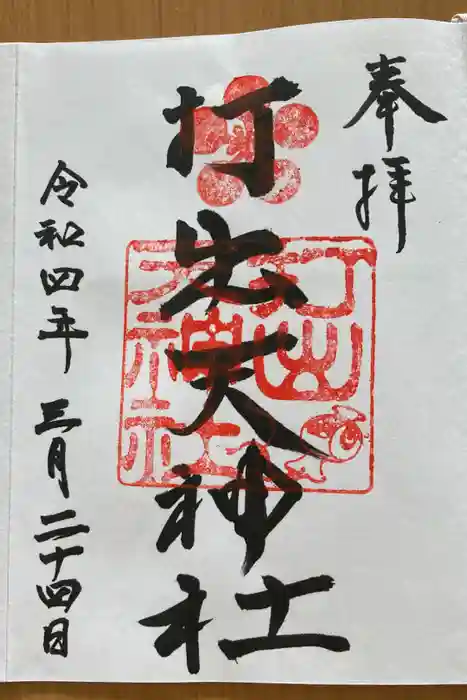 奉拝
打出天神社
令和四年三月二十四日
打出
天神社